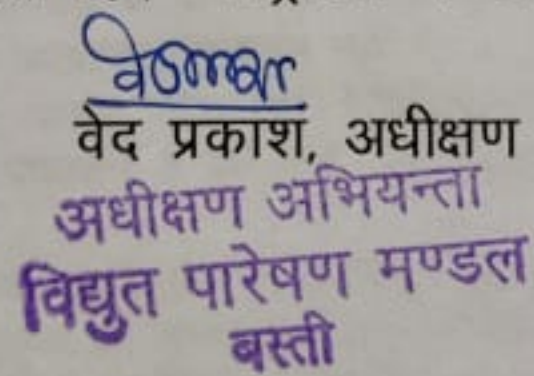 वेद प्रकाश, अधीक्षण
अधीक्षण अभियन्ता
विद्युत पारेषण मण्डल
बस्ती